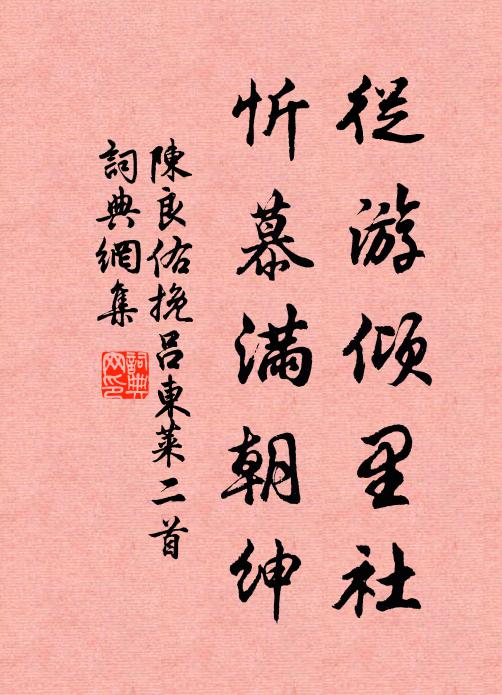 從游傾里社
忻慕滿朝紳
陳良佑挽呂東萊二首
詞典網集
詞典网印